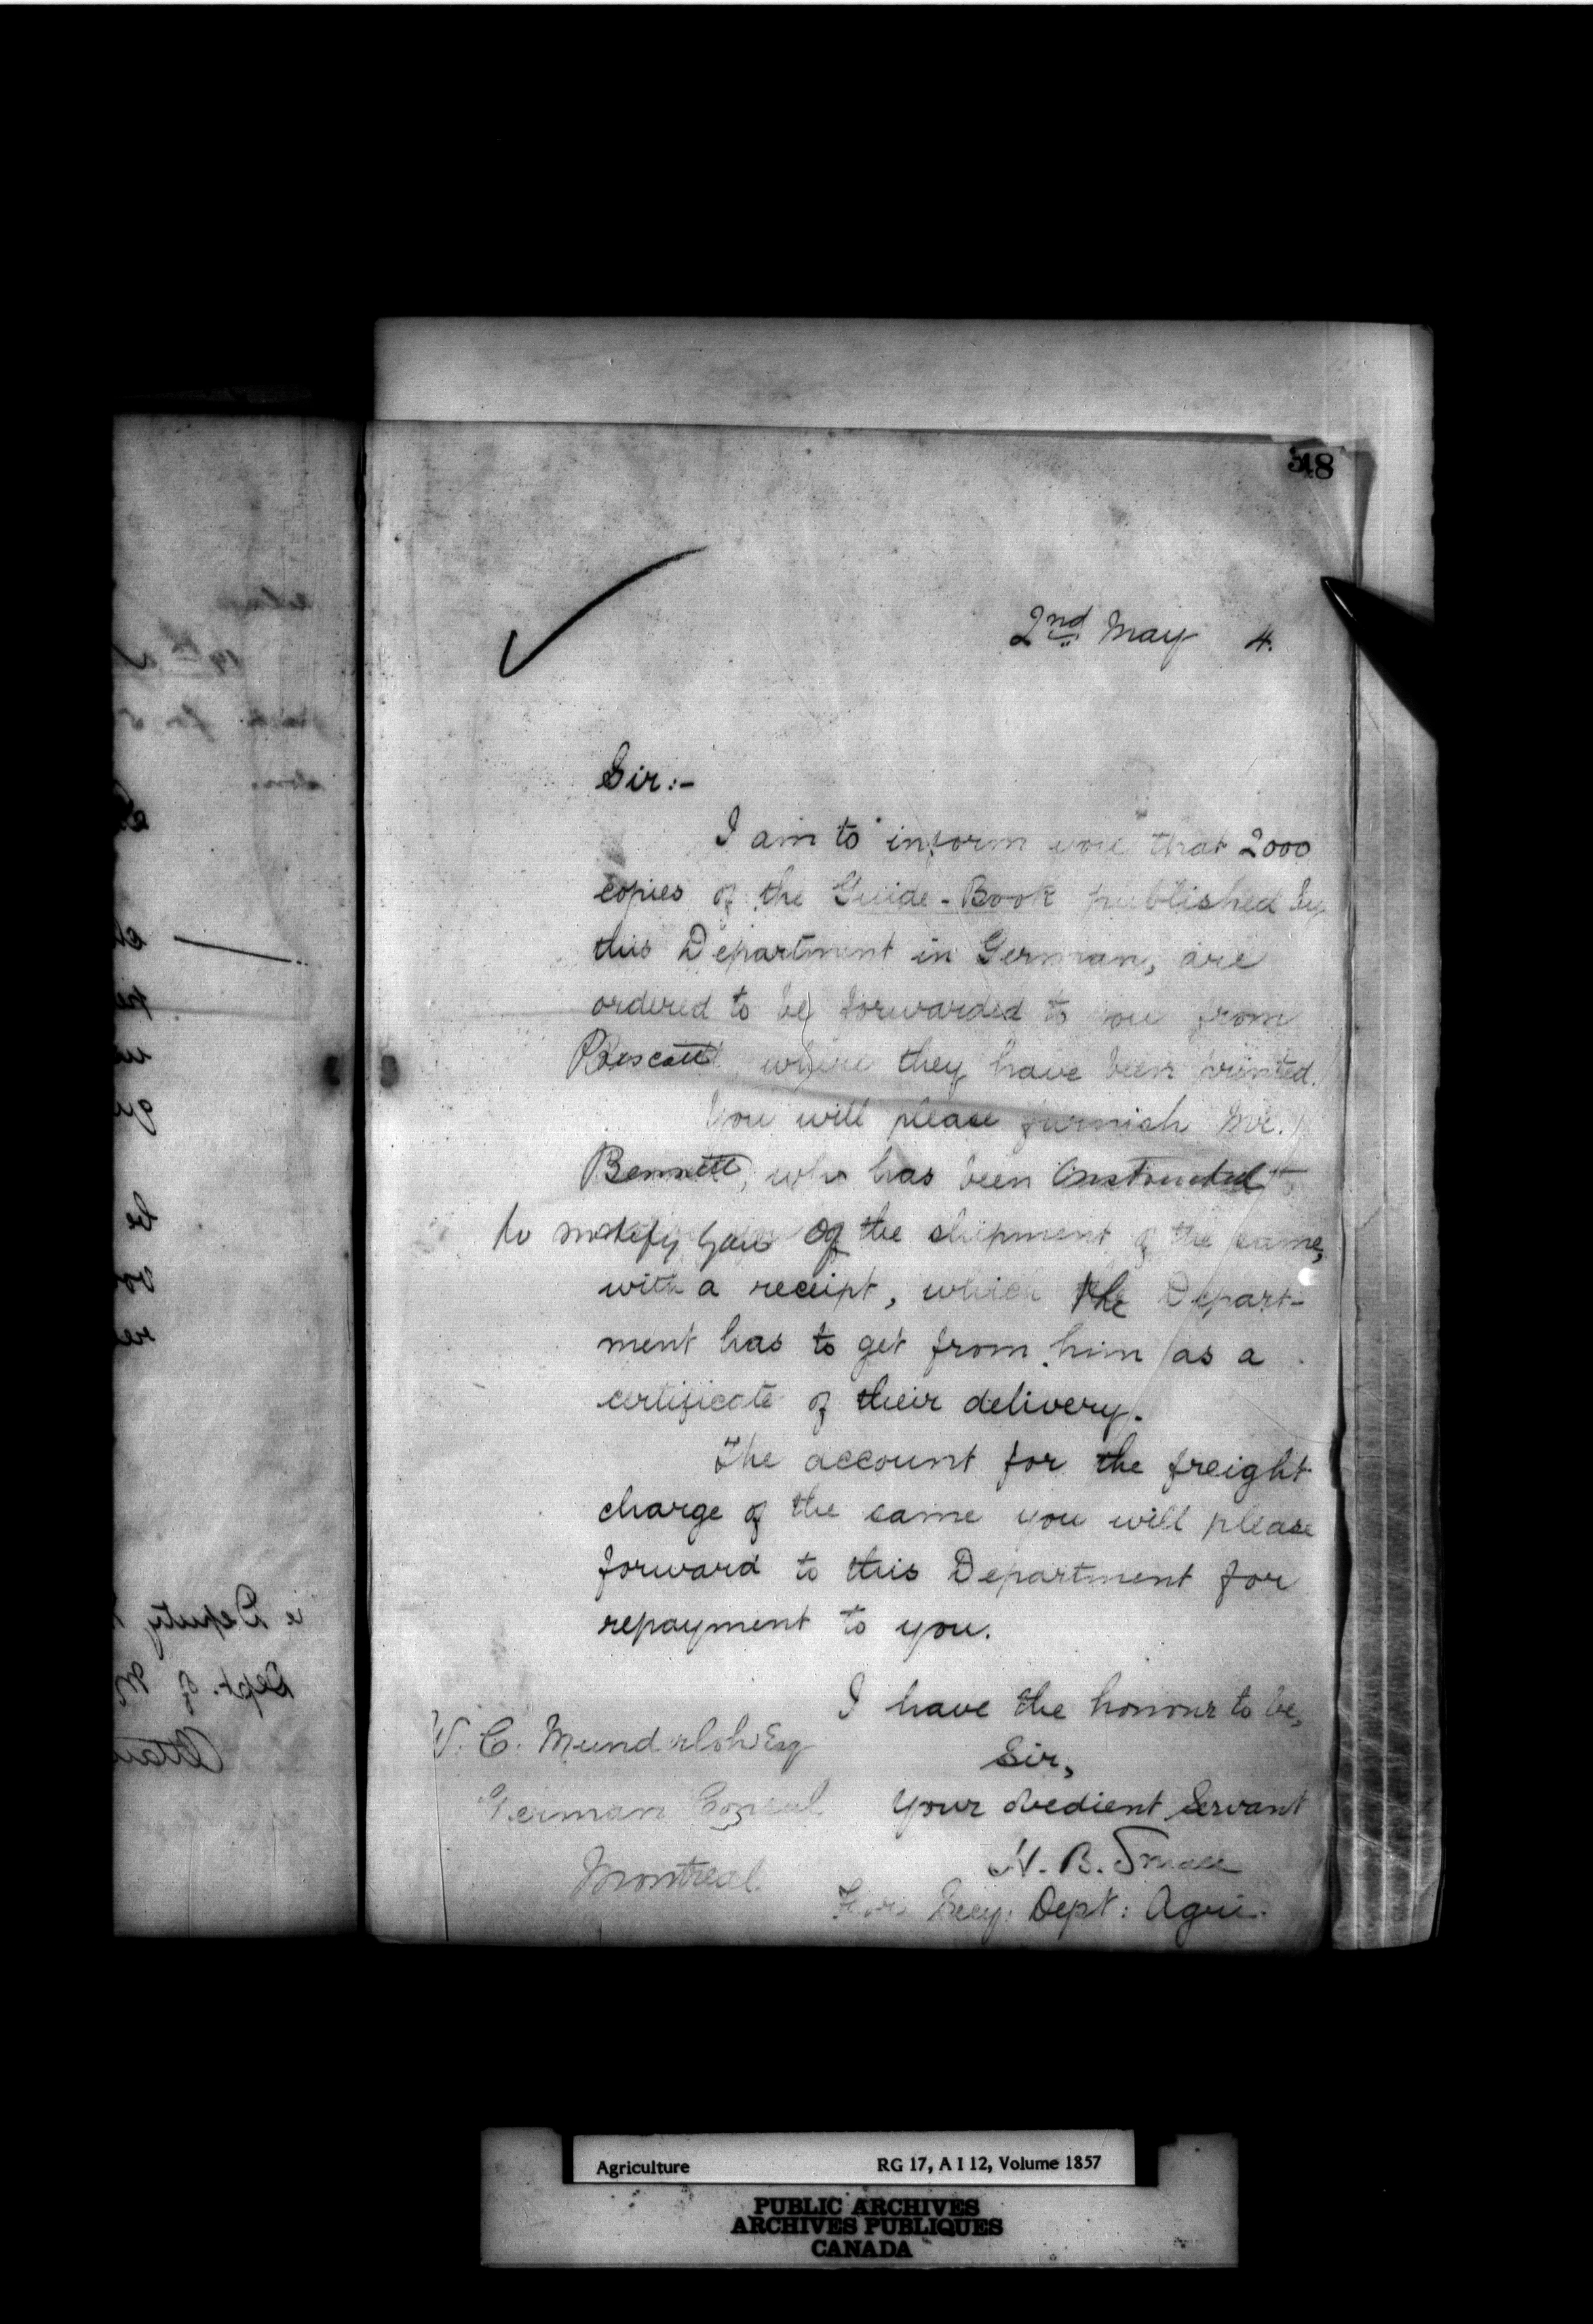 518
2nd May 4.
Sir:-
I am to inform you that 2000
copies of the Guide-Book published by
this Department in German, are
ordered to be forwarded to you from
Prescott, where they have been printed.
You will please furnish Mr.
Bennett, who has been instructed
to notify you of the shipment of the same,
with a receipt, which the Depart-
ment has to get from him as a
certificate of their delivery.
The account for the freight
charge of the same you will please
forward to this Department for
repayment to you.
I have the honour to be,
Sir,
Your obedient Servant
H. B. Small
For Secy. Dept: Agri.
W. C. Munderloh Esq
German Consul
Montreal
Deputy
Dept. of
Agriculture RG 17, A I 12, Volume 1857
PUBLIC ARCHIVES
ARCHIVES PUBLIQUES
CANADA